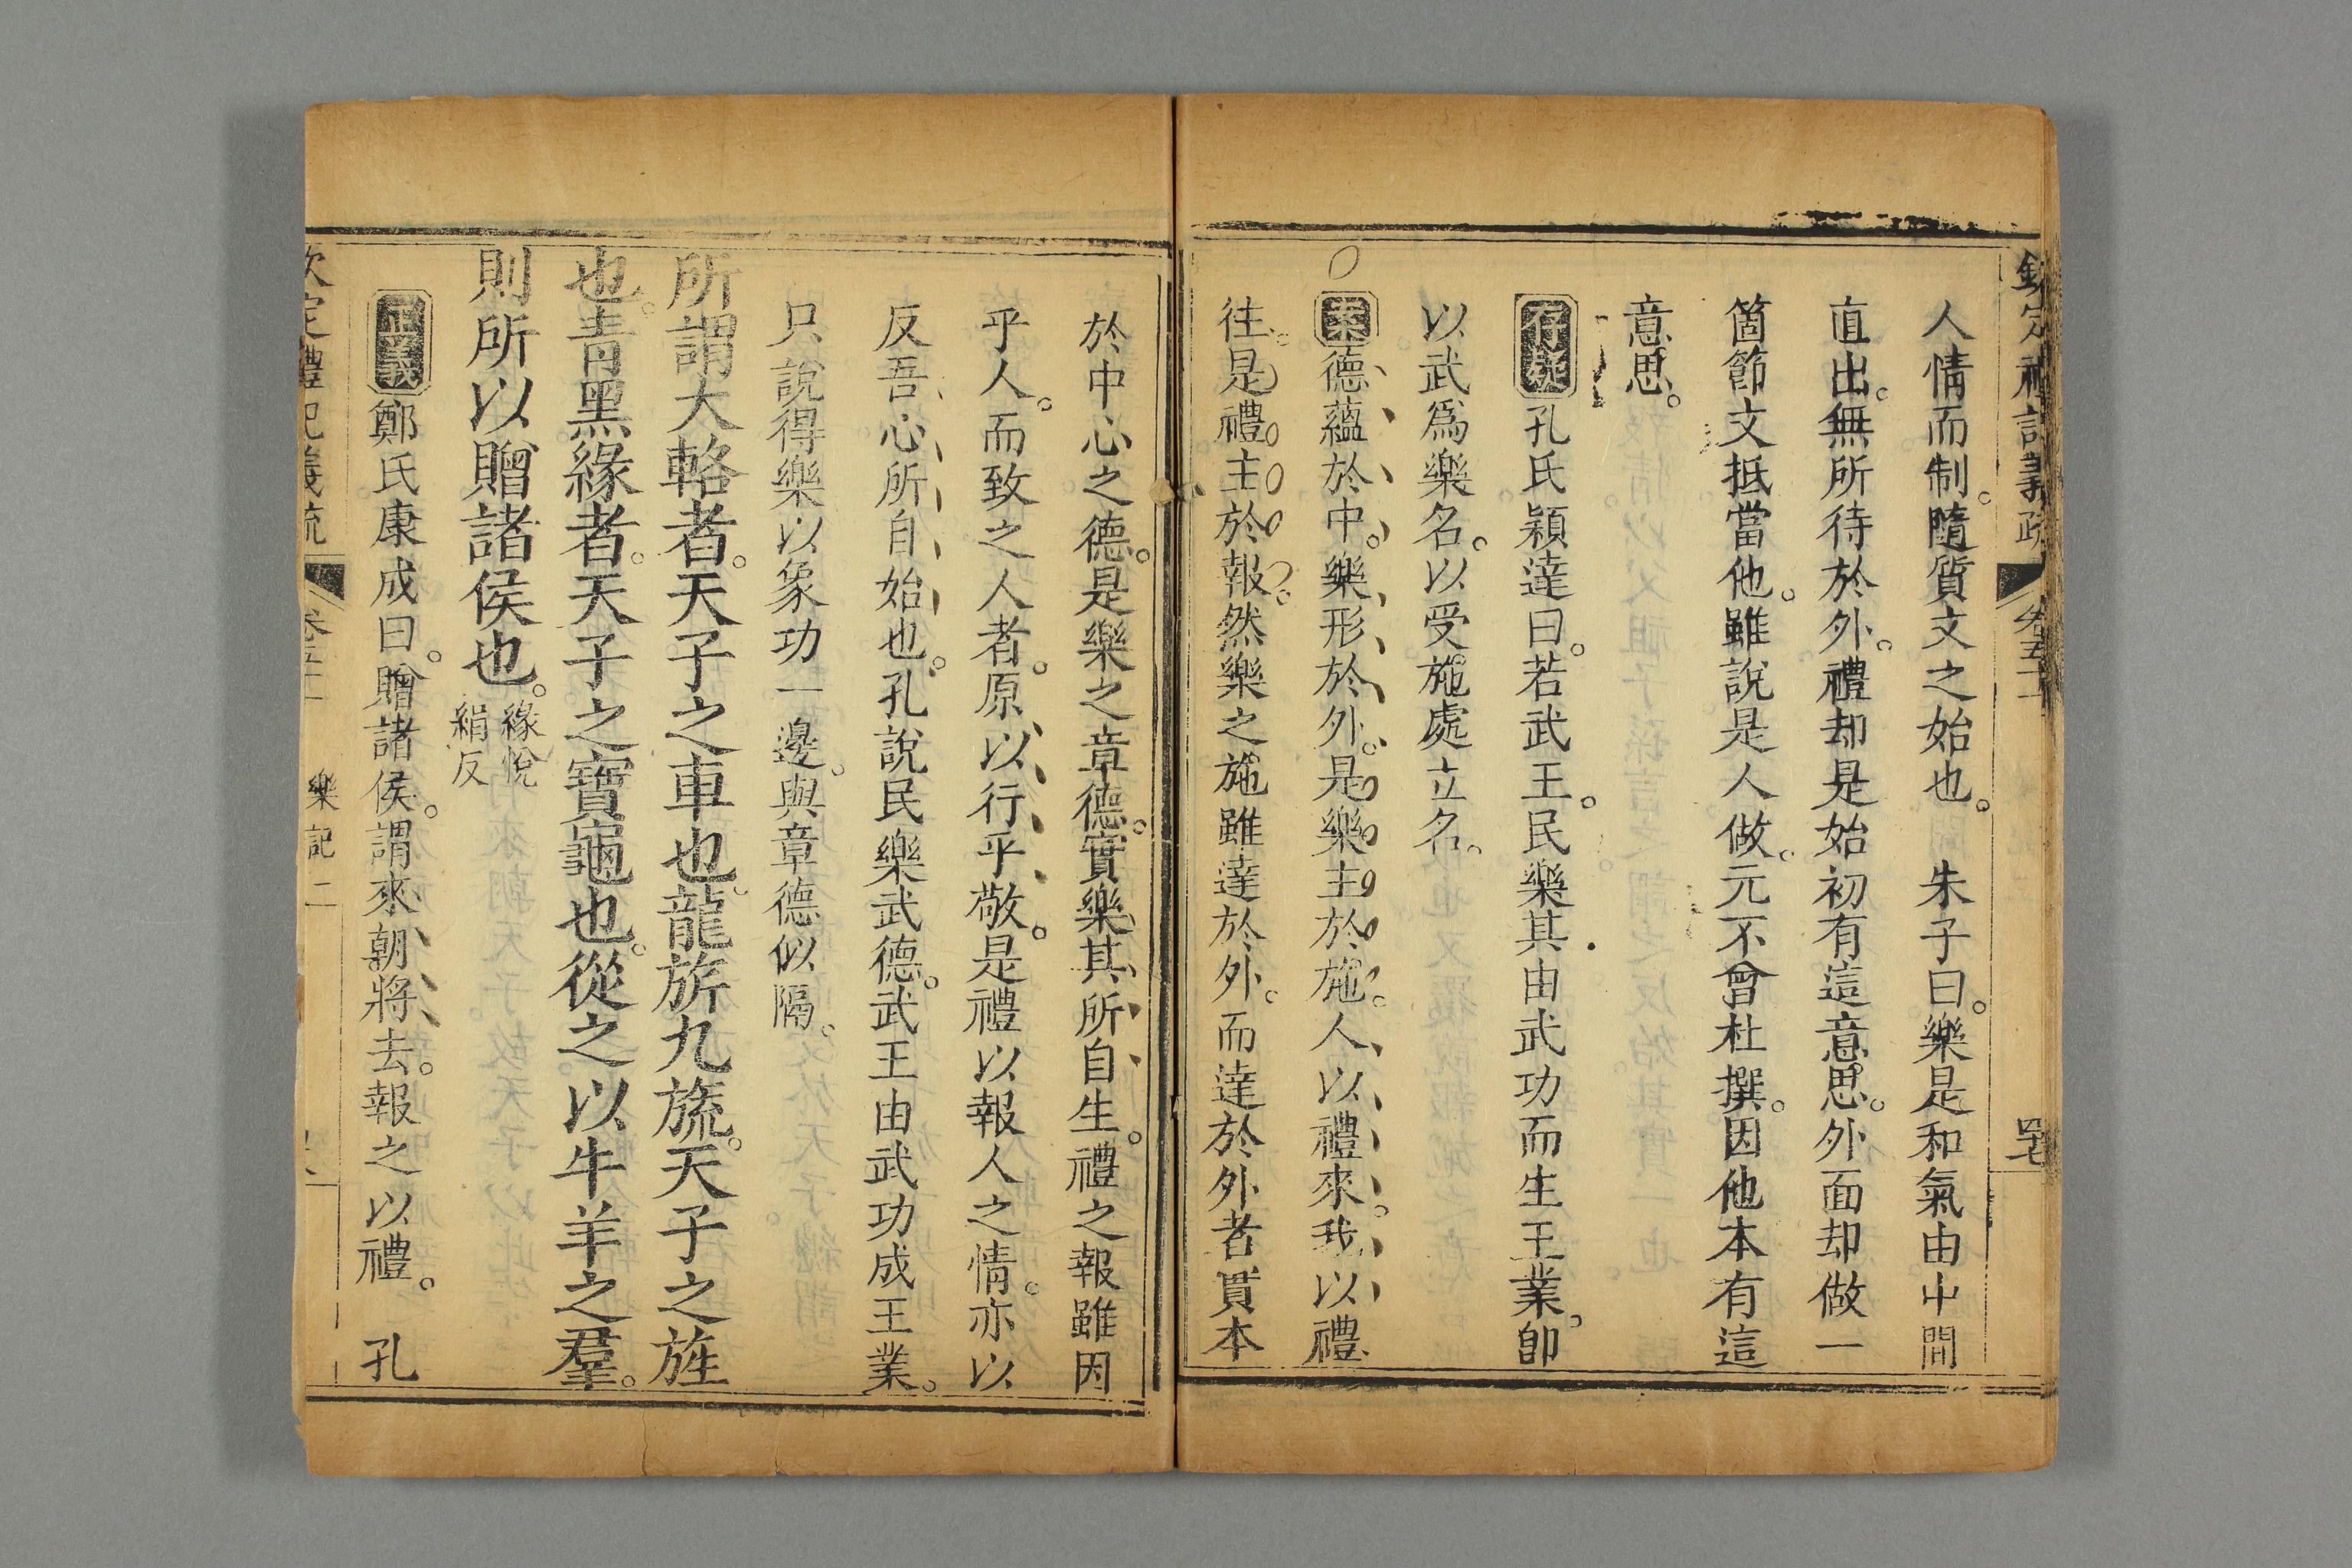 人情而制。隨質文之始也。　朱子曰。樂是和氣由中間
直出。無所待於外。禮却是始初有這意思。外面却做一
箇節文抵當他。雖說是人做。元不曾杜撰。因他本有這
意思。
存疑孔氏穎達曰。若武王。民樂其由武功而生王業。卽
以武爲樂名。以受施處立名。
案德蘊於中。樂形於外。是樂主於施。人以禮來。我以禮
往。是禮主於報。然樂之施雖達於外。而達於外者貫本
於中心之德。是樂之章德。實樂其所自生。禮之報雖因
乎人。而致之人者。原以行乎敬。是禮以報人之情。亦以
反吾心所自始也。孔說民樂武德。武王由武功成王業。
只說得樂以象功一邊。與章德似隔。
所謂大輅者。天子之車也。龍旂九旒。天子之旌
也。靑黑緣者。天子之寶龜也。從之以牛羊之羣。
則所以贈諸侯也。緣悅
絹反
正義鄭氏康成曰。贈諸侯。謂來朝將去。報之以禮。　孔
欽定禮記義疏
樂記二